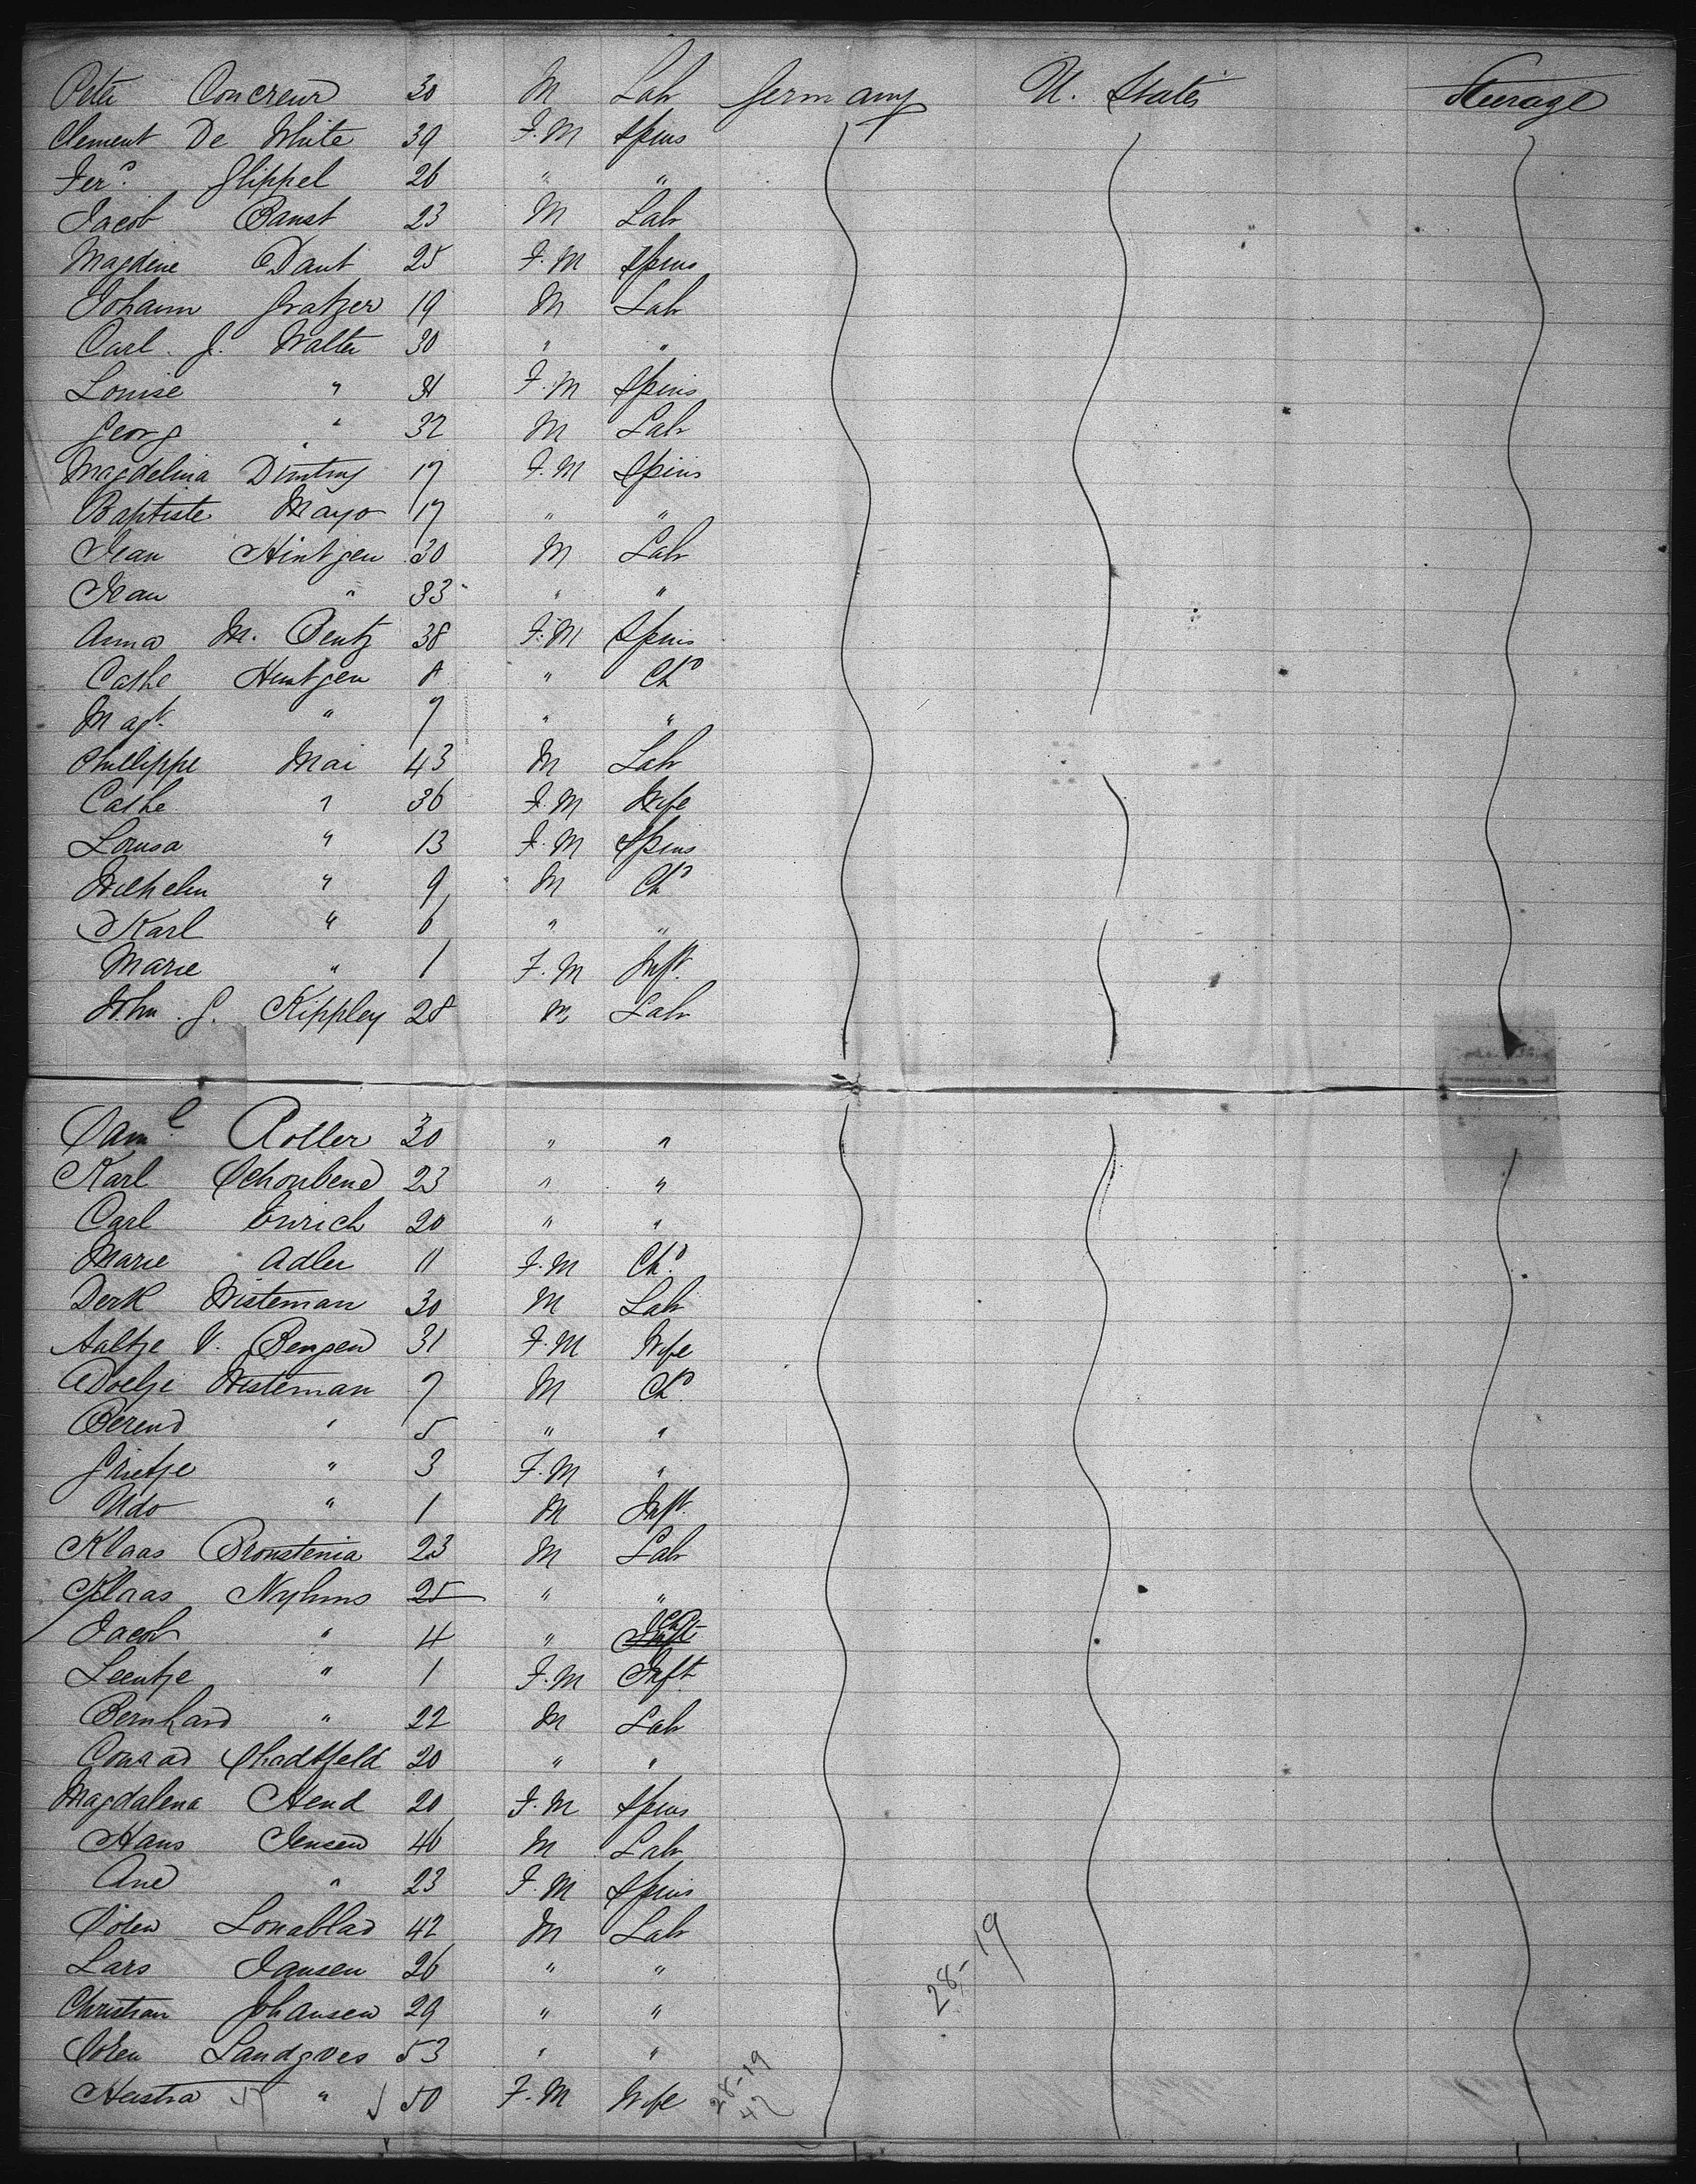 Peter Concreur 30 M Lab Germany U. States Steerage
Clement De White 39 F.M Spins
Ferd. Glippel 26 " "
Jacob Banst 23 M Lab
Magdine Daut 25 F.M Spins
Johann Gratzer 19 M Lab
Carl J. Walter 30 " "
Louise " 31 F.M Spins
Georg " 32 M Lab
Magdelina Dimtry 17 F.M Spins
Baptiste Mayo 17 " "
Jean Hintgen 30 M Lab
Jean " 33 " "
Anna M. Bentz 38 F.M Spins
Cathe Hentgen 8 " Chd
Magt. " 7 " "
Phillippe Mai 43 M Lab
Cathe " 36 F.M Wife
Lousa " 13 F.M Spins
Wilhelm " 9 M Chd
Karl " 6 " "
Marie " 1 F.M Inft.
John G. Kippley 28 M Lab
Saml. Roller 30 " "
Karl Schonbend 23 " "
Carl Emrich 20 " "
Marie Adler 11 F.M Chd.
Derk Wisteman 30 M Lab
Aaltje V. Bengen 31 F.M Wife
Doelje Wisteman 7 M Chd.
Berend " 5 " "
Grietje " 3 F.M "
Udo " 1 M Inft.
Klaas Bronstenia 23 M Lab
Klaas Nyhms 25 " "
Jacob " 4 " Chd
Leentje " 1 F.M Inft
Bernhard " 22 M Lab
Conrad Shadtfeld 20 " "
Magdalena Hend 20 F.M Spins
Hans Jensen 46 M Lab
Ane " 23 F.M Spins
Sören Lonablad 42 M Lab
Lars Jansen 26 " "
Christian Johansen 29 " "
Soren Landgves 53 " "
Heistra " 50 F.M Wife
28-19
28-19
42